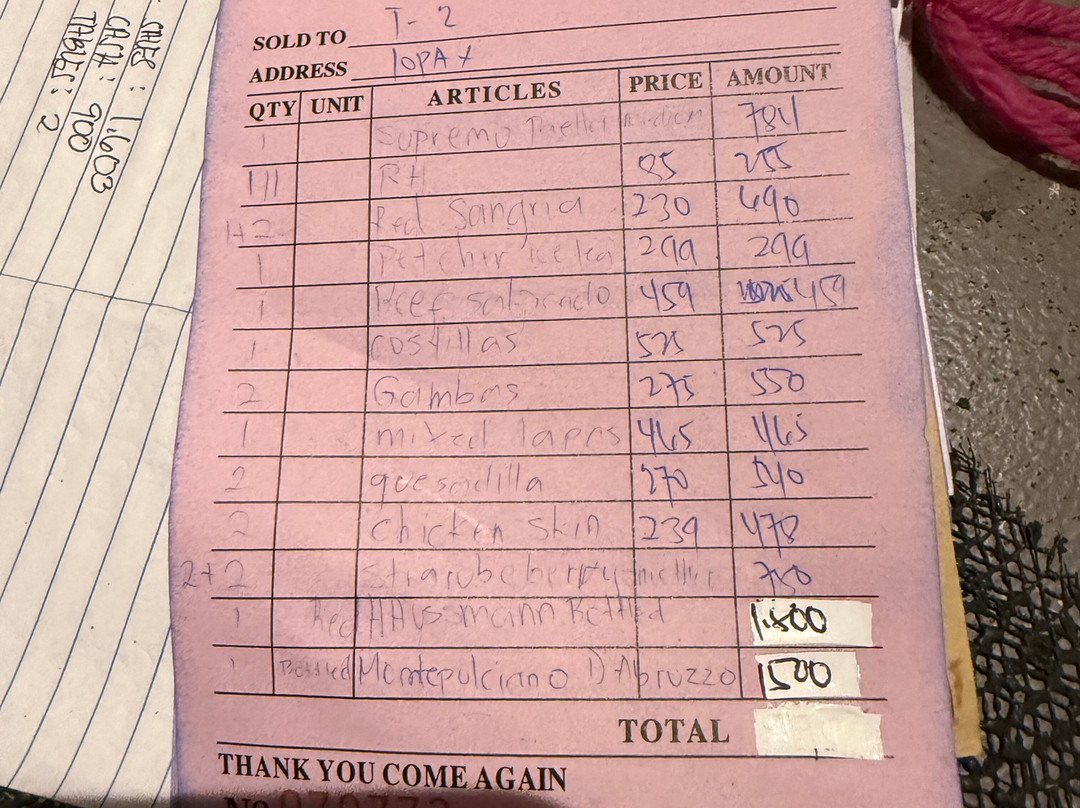 SALES : 1.603
CASH : 900
TABLES : 2
SOLD TO T- 2
ADDRESS 10PAX
QTY UNIT ARTICLES PRICE AMOUNT
1 Supremo Paella 784
III RH 85 255
1+2 Red Sangria 230 690
1 Petcher ice tea 299 299
1 459 459
1 costillas 525 525
2 Gambas 275 550
1 mixed 465 465
2 quesadilla 270 540
2 chicken skin 239 478
2+2 750
1 Red HAussmann Bottled 1.800
1 Bottled Montepulciano D Abruzzo 1500
TOTAL
THANK YOU COME AGAIN